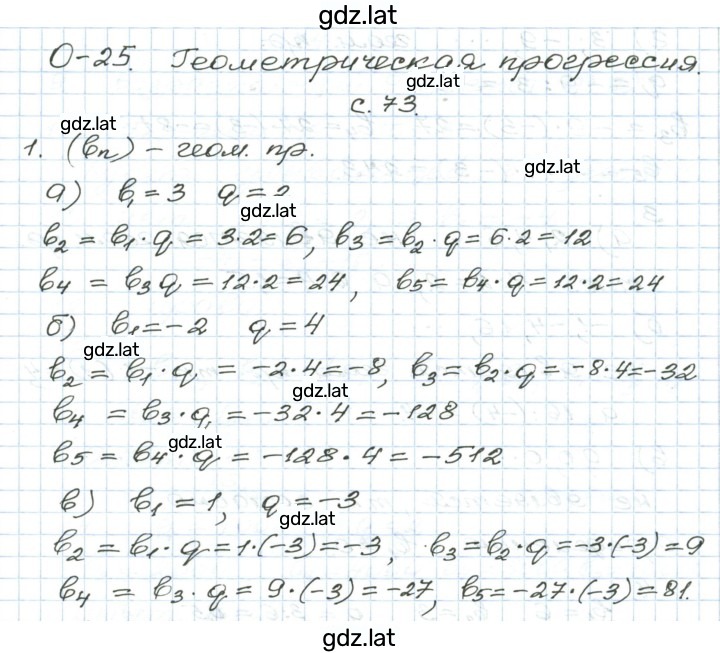 gdz.lat
О-25. Геометрическая прогрессия.
gdz.lat
с. 73.
gdz.lat
1. (bₙ) – геом. пр.
gdz.lat
а) b₁ = 3 q = 2
gdz.lat
b₂ = b₁ · q = 3·2 = 6, b₃ = b₂ · q = 6·2 = 12
b₄ = b₃ q = 12·2 = 24, b₅ = b₄ · q = 12·2 = 24
б) b₁ = −2 q = 4
gdz.lat
b₂ = b₁ · q = −2·4 = −8, b₃ = b₂ · q = −8·4 = −32
gdz.lat
b₄ = b₃ · q = −32·4 = −128
gdz.lat
b₅ = b₄ · q = −128·4 = −512
в) b₁ = 1, q = −3
gdz.lat
b₂ = b₁ · q = 1·(−3) = −3, b₃ = b₂ · q = −3·(−3) = 9
b₄ = b₃ · q = 9·(−3) = −27, b₅ = −27·(−3) = 81.
gdz.lat